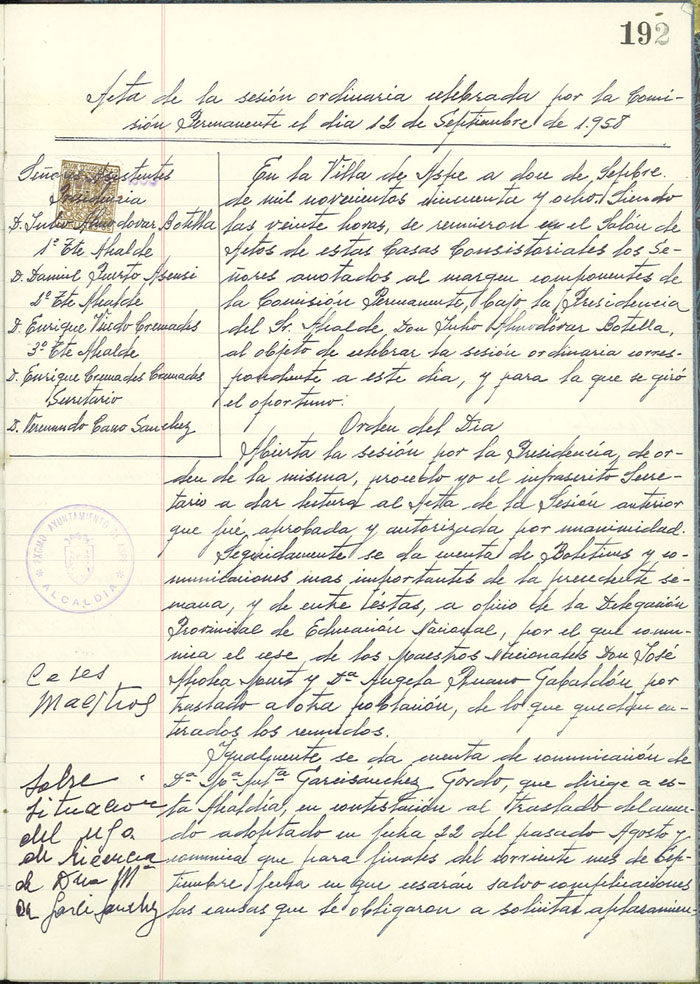 192
Acta de la sesión ordinaria celebrada por la Comi-
sión Permanente el dia 12 de Septiembre de 1.958
Señores Asistentes
Presidencia
D. Julio Almodovar Botella
1º Tte Alcalde
D. Daniel Puerto Asensi
2º Tte Alcalde
D. Enrique Cremades
3º Tte Alcalde
D. Enrique Cremades Cremades
Secretario
D. Veremundo Cano Sanchez
En la Villa de Aspe a doce de Sepbre.
de mil novecientos cincuenta y ocho. Siendo
las veinte horas, se reunieron en el Salón de
Actos de estas Casas Consistoriales los Se-
ñores anotados al margen componentes de
la Comisión Permanente, bajo la Presidencia
del Sr. Alcalde, Don Julio Almodóvar Botella,
al objeto de celebrar la sesión ordinaria corres-
pondiente a este dia, y para la que se giró
el oportuno:
Orden del Dia
Abierta la sesión por la Presidencia, de or-
den de la misma, procedo yo el infrascrito Secre-
tario a dar lectura al Acta de la Sesión anterior
que fué aprobada y autorizada por unanimidad.
Seguidamente se da cuenta de Boletines y co-
municaciones mas importantes de la precedente se-
mana, y de entre éstas, a oficio de la Delegación
Provincial de Educación Nacional, por el que comu-
nica el cese de los Maestros Nacionales Don José
y Dª Angela Gabaldón, por
traslado a otra población, de lo que quedan en-
terados los reunidos.
Igualmente se da cuenta de comunicación de
Dª Garcisánchez Gordo, que dirige a es-
ta Alcaldía, en contestación al traslado del acuer-
do adoptado en fecha 22 del pasado Agosto y
comunica que para finales del corriente mes de Sep-
tiembre fecha en que cesarán salvo complicaciones
las causas que le obligaron a solicitar aplazamien-
EXCMO AYUNTAMIENTO DE ASPE
ALCALDIA
Ceses
Maestros
Sobre
situacion
del
de licencia
de Dña Mª
Garcisanchez